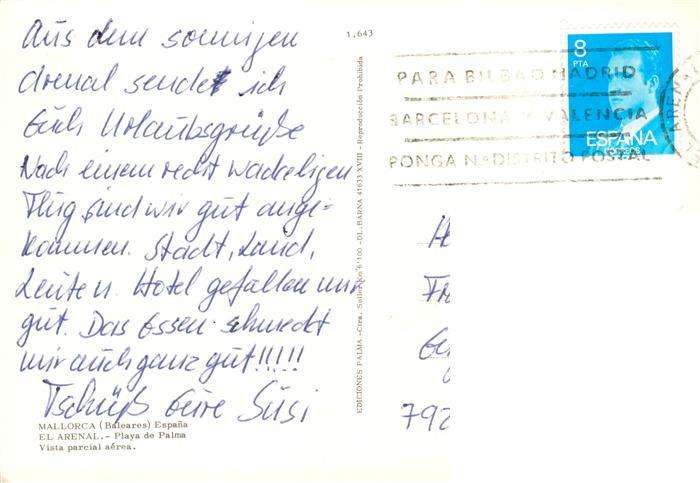 Aus dem sonnigen
Arenal sendet ich
Euch Urlaubsgrüße
Nach einem recht wackeligen
Flug sind wir gut ange-
kommen. Stadt, Land,
Leute u. Hotel gefallen mir
gut. Das Essen schmeckt
mir auch ganz gut!!!!!
Tschüß Eure Susi
MALLORCA (Baleares) España
EL ARENAL.- Playa de Palma
Vista parcial aérea.
1.643
EDICIONES PALMA -Ctra. Soller Km 6'100 -DL. BARNA 41633 XVIII - Reproducción Prohibida
8
PTA
ESPAÑA
PARA BILBAO MADRID
BARCELONA Y VALENCIA
PONGA Nº DISTRITO POSTAL
ARENAL
H
Fr
792